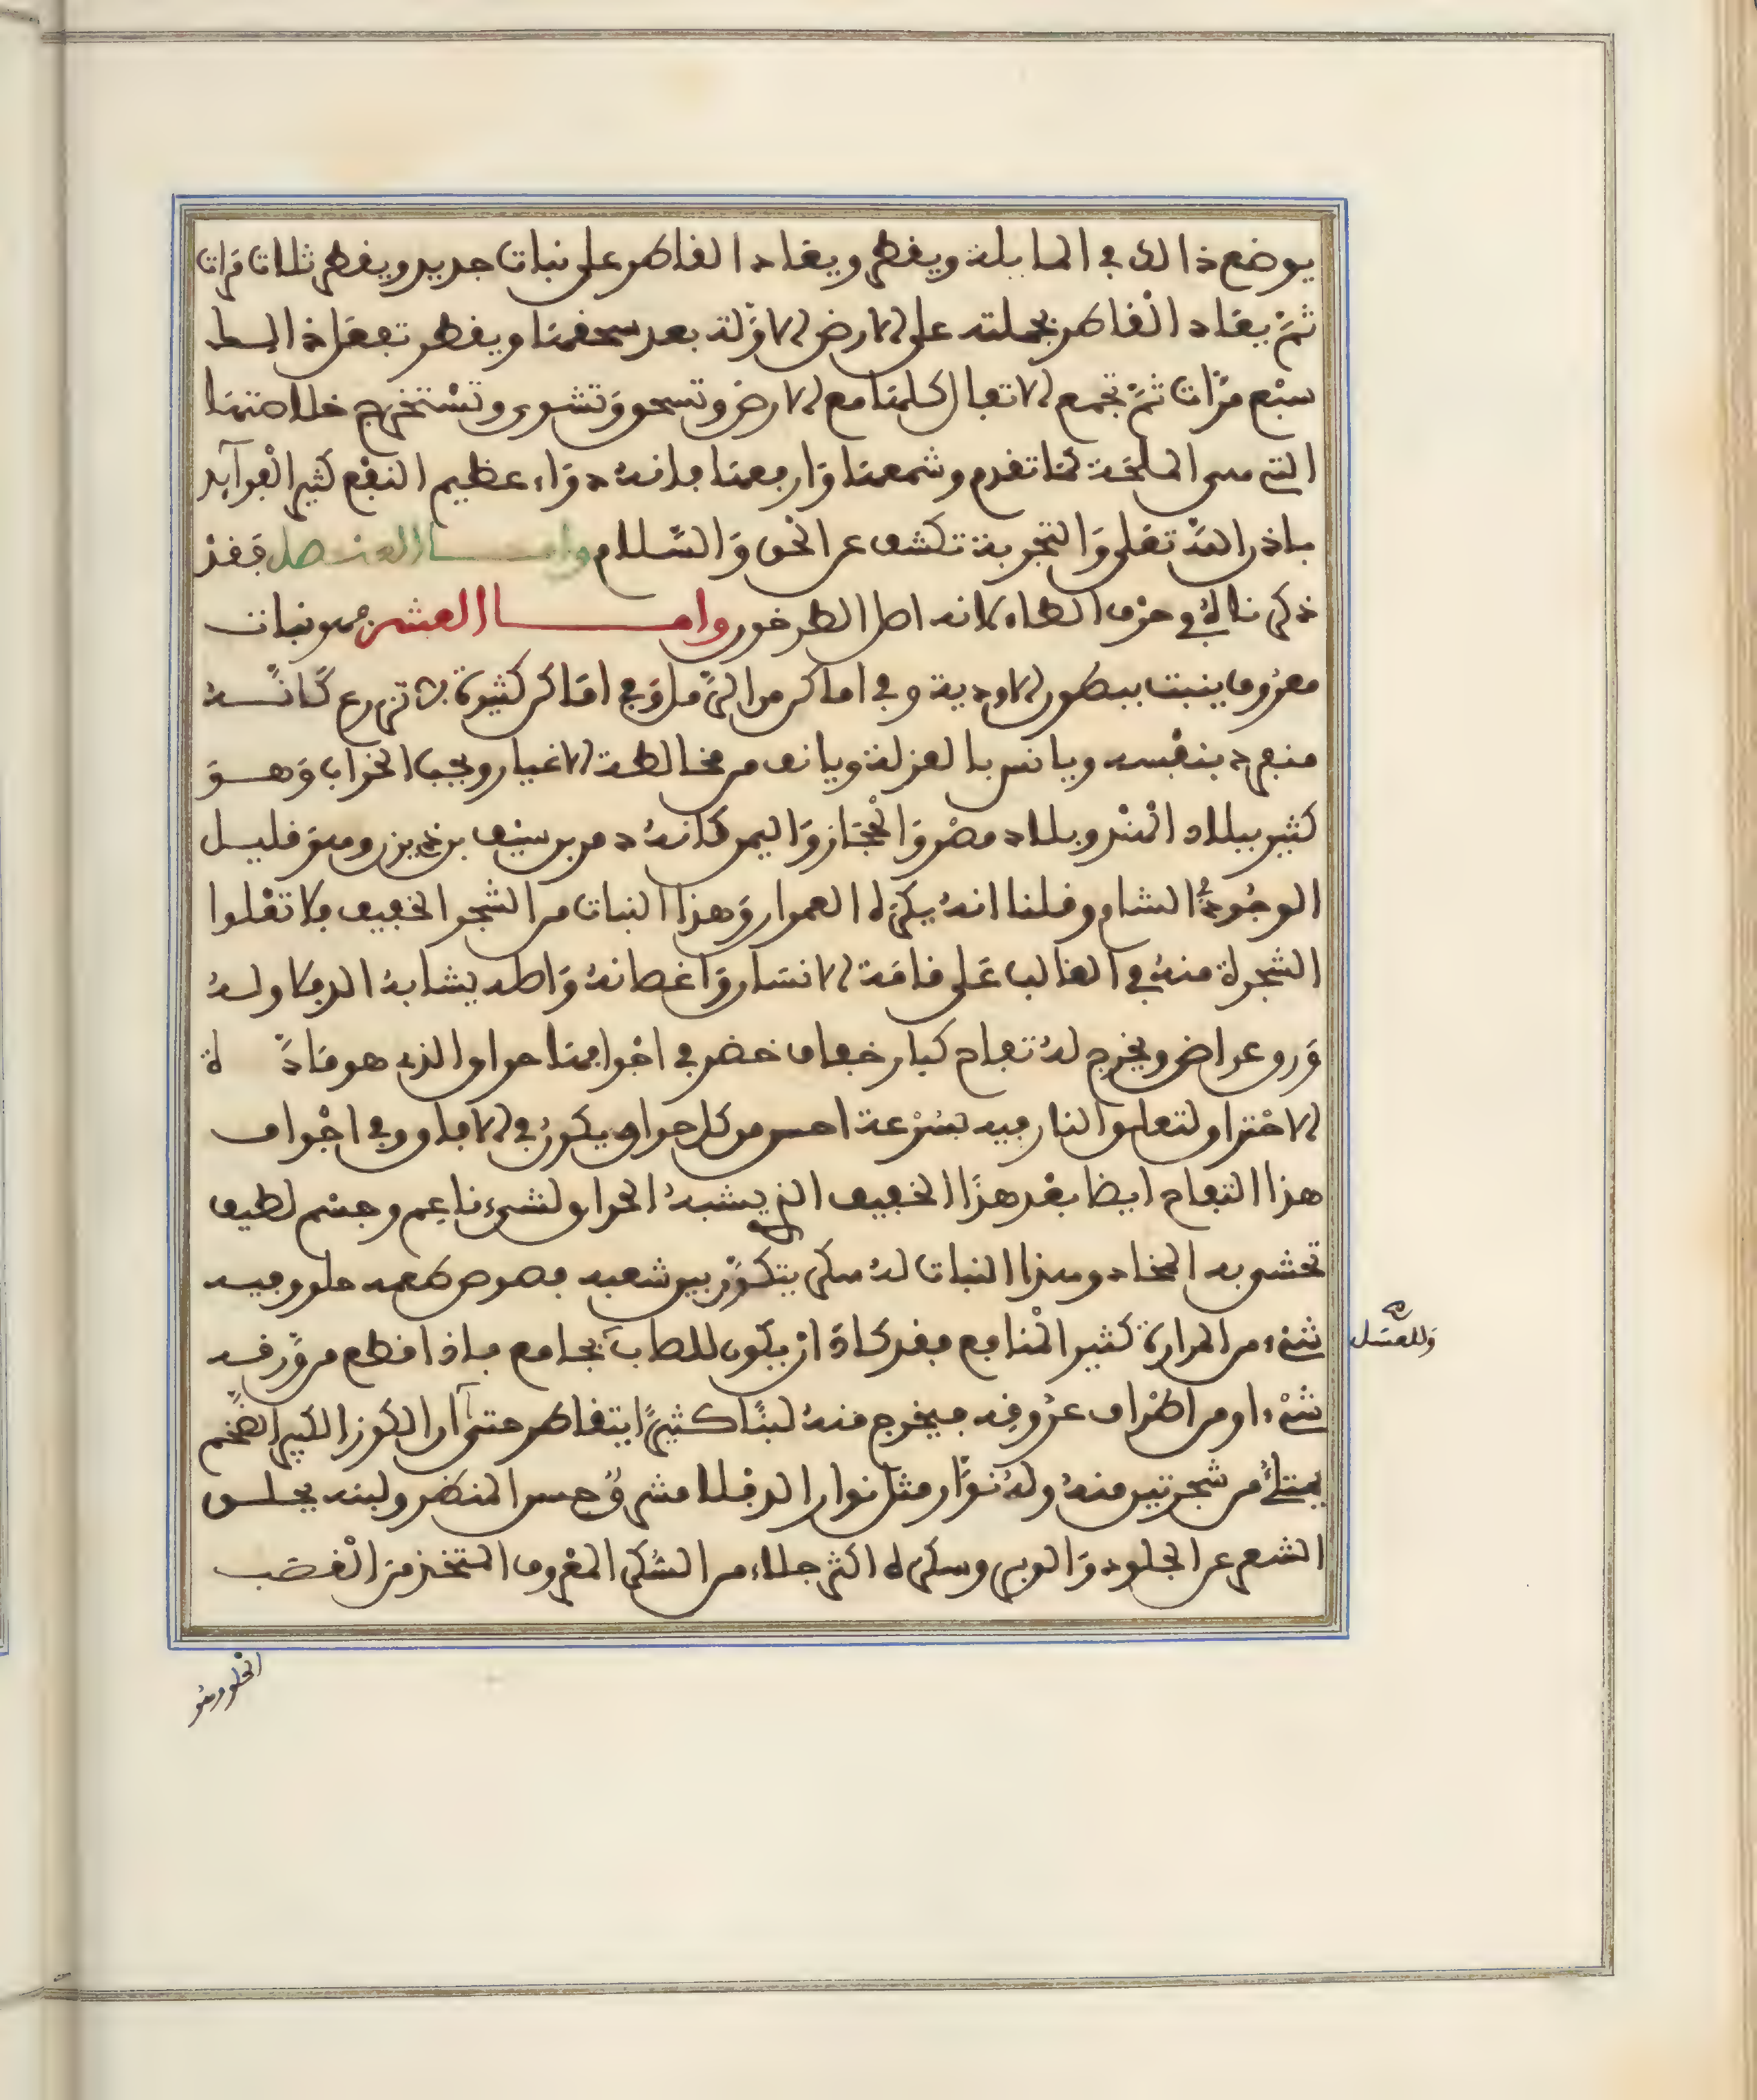 يوضع ذالك في المايلة ويقطر ويعاد القاطر على نبات جديد ويقطر ثلاث مرات
ثم يعاد القاطر بجملته على الارض الاولة بعد سحقها ويقطر تفعل ذالك
سبع مرات ثم تجمع الاتفال كلها مع الارض وتسحق وتشوى وتستخرج خلاصتها
التي هي الملحة كما تقدم وشمعها وارفعها فانه دواء عظيم النفع كثير الفوآيد
باذن الله تعلى والتجربة تكشف عن الحق والسلام وامـــا العنصل فقد
ذكرناه في حرف الطاء لانه اصل الطرخون وامـــا العشر فهو نبات
معروف ينبت ببطون الاودية وفي اماكن من الرمل وفي اماكن كثيرة لا تزرع كانه
منفرد بنفسه ويانس بالعزلة ويانف من مخالطة الاغيار ويحب الخراب وهو
كثير ببلاد الهند وبلاد مصر والحجاز واليمن كانه دمر بن سيف بن ذي يزن وهو قليل
الوجود في الشام وقلنا انه يكره العمران وهذا النبات من الشجر الخفيف فلا تعلوا
الشجرة منه في الغالب على قامة الانسان واغصانه واصله يشابه الدفلا وله
ورق عراض ويخرج له تفاح كبار خفاف خضر في اجوافها حراق الذي هو مادة
الاحتراق لتعلق النار فيه بسرعة احسن من كل حراق يكون في الافاق وفي اجواف
هذا التفاح ايضا بعد هذا الخفيف الذي يشبه الحراق لشيء ناعم وجسم لطيف
تحشى به المخاد وهذا النبات له سكر يتكون بين شعبه فصوص طعمه حلو وفيه
شيء من المرارة كثير المنافع فقد كاد ان يكون للطب بجامع فاذا قطع من ورقه
شيء او من اطراف عروقه فيخرج منه لبنا كثيرا يتقاطر حتى ان الكوز الكبير الضخم
يمتلئ من شجرتين منه وله نوار مثل نوار الدفلا مشرق حسن المنظر ولبنه يحلق
الشعر عن الجلود والوبر وسكره اكثر جلاء من السكر المعروف المتخذ من القصب
وللعسل
الحلو وهو